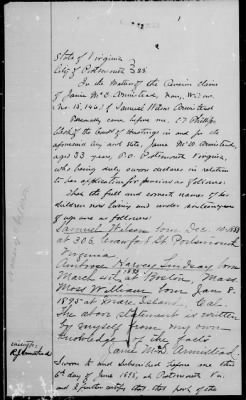 State of Virginia
City of Portsmouth } SS
In the Matter of the Pension claim
of Janie Mc D. Armistead, Nav. Widow
No. of Samuel Wilson Armistead
Personally came before me,
Clerk of the Court of Hustings in and for the
aforesaid City and State, Janie Mc D. Armistead,
aged 33 years, P.O. Portsmouth Virginia,
who being duly sworn declares in relation
to her application for pension as follows:
That the full and correct names of her
children now living and under sixteen years
of age are as follows:
Samuel Wilson born Dec. 10 1888
at 306 Crawford St Portsmouth
Virginia
Ambrose Harvey Lindsay born
March Boston, Mass
Moss William born Jan 8
1895 at Mare Island, Cal.
The above statement is written
by myself from my own
knowledge of the facts
Janie McD. Armistead.
Sworn to and Subscribed before me this
6th day of June 1898, at Portsmouth Va.
and I further certify that that part of the